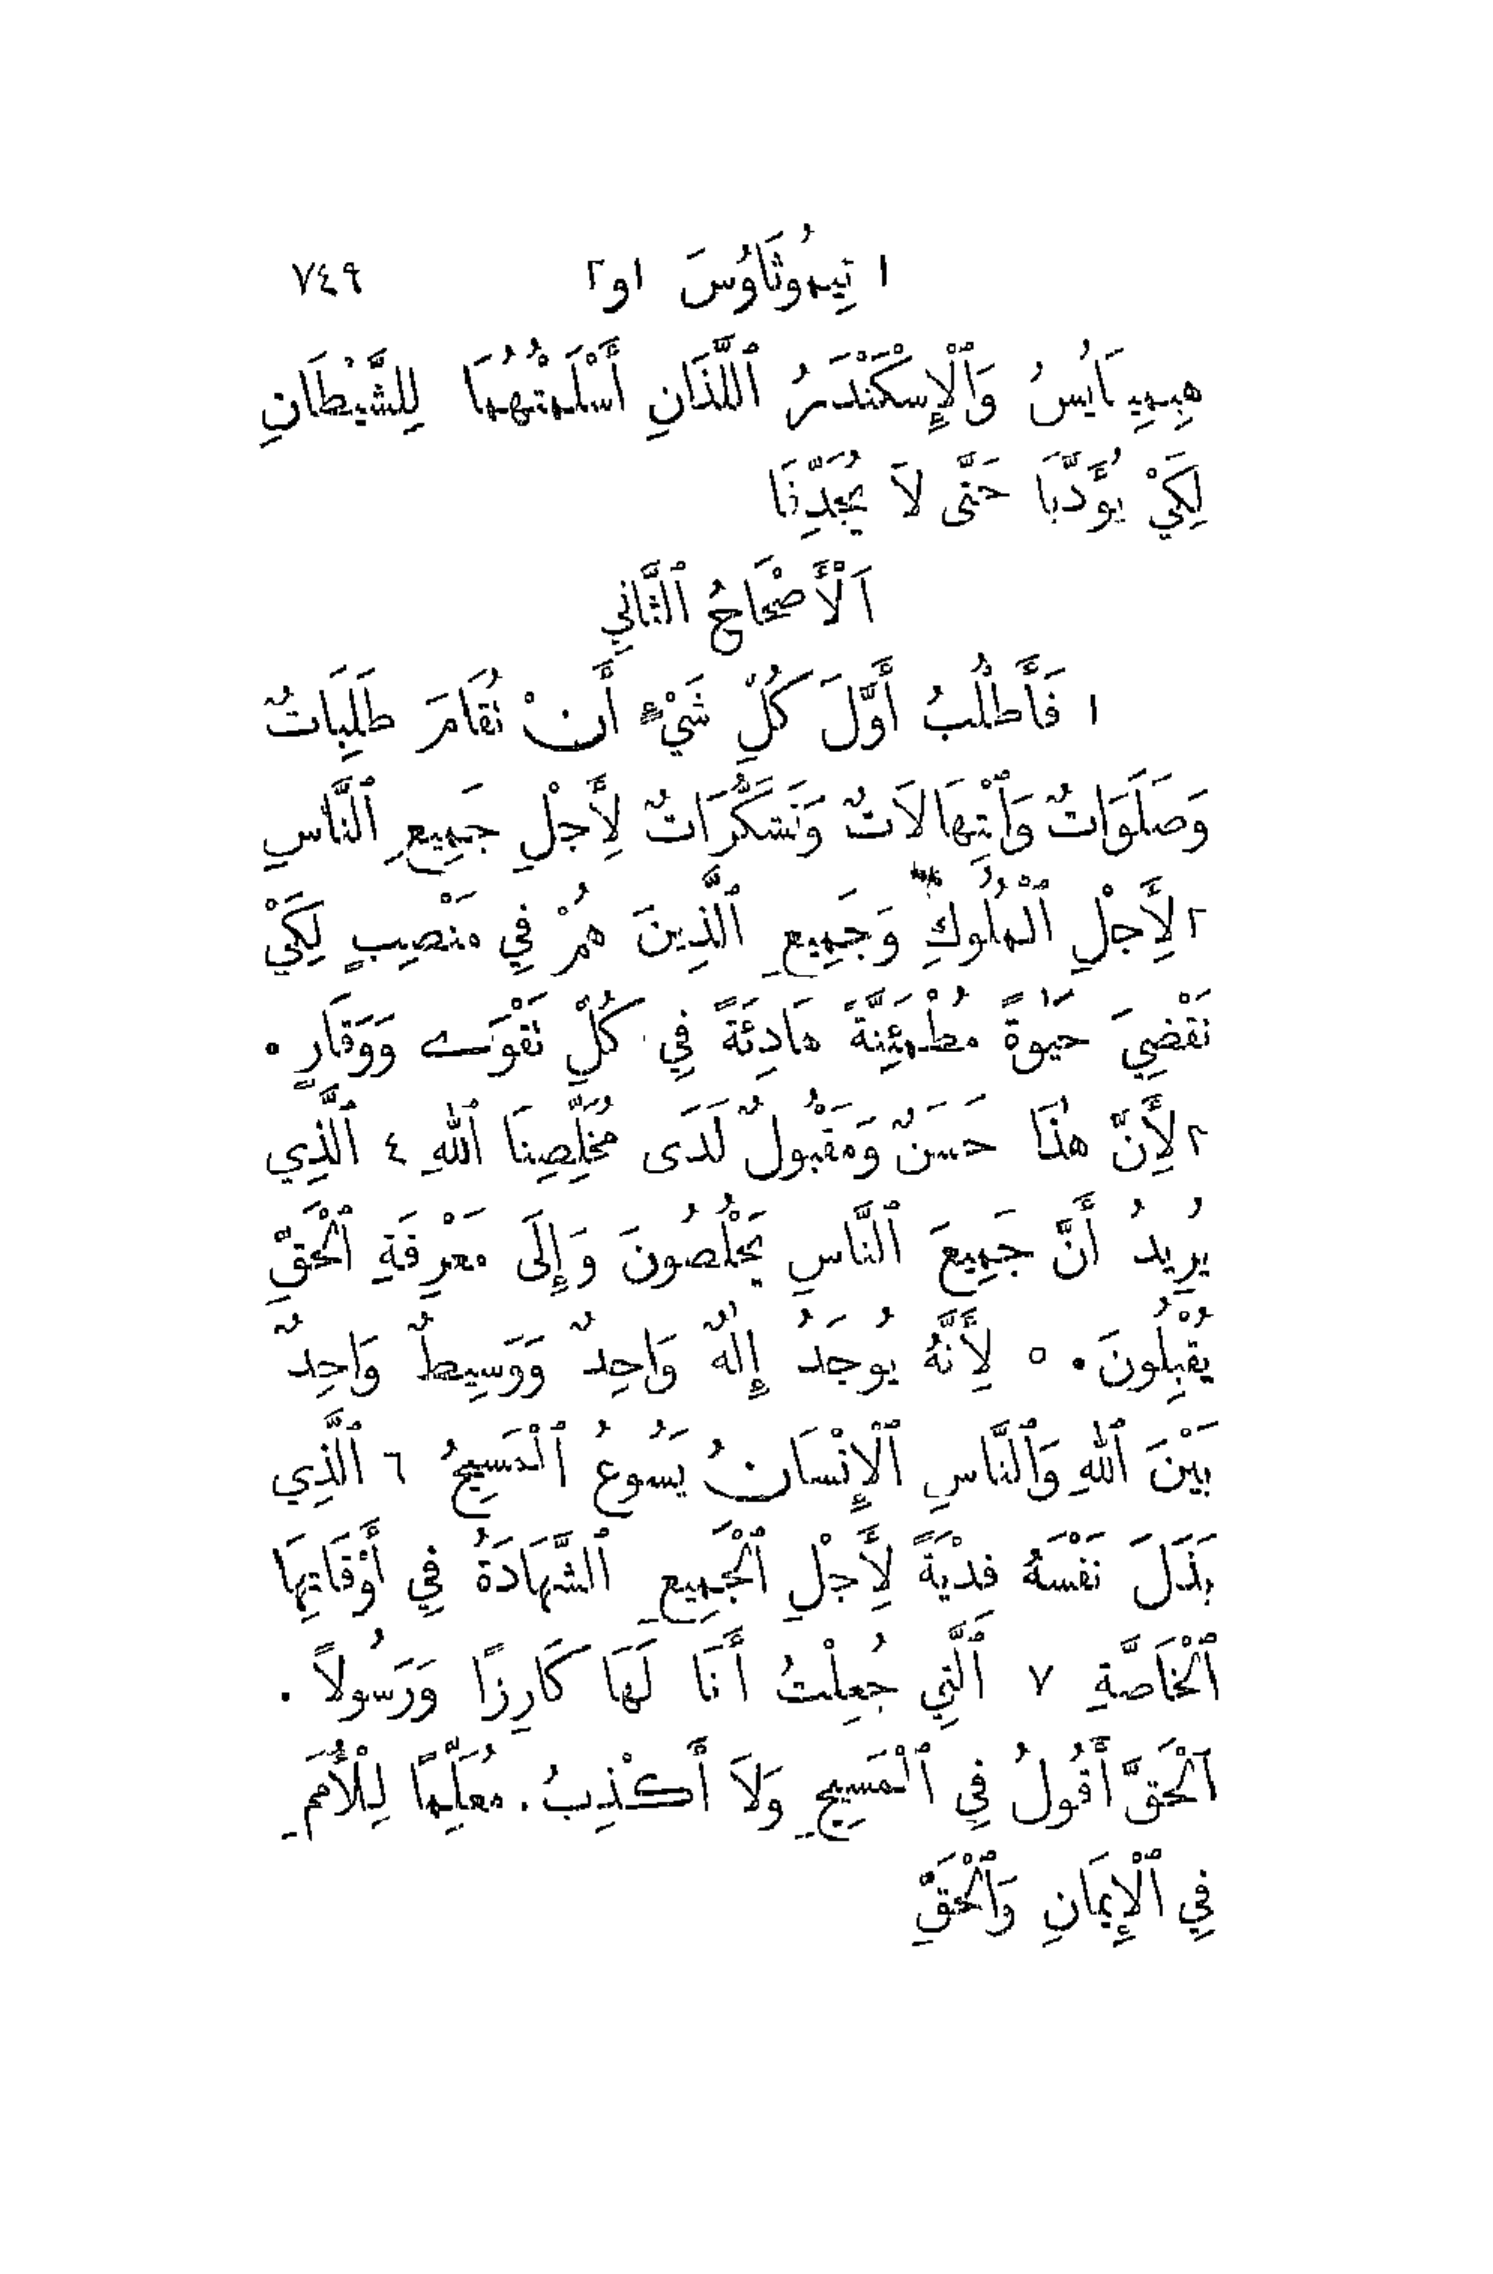 ١ تِيمُوثَاوُسَ ١و٢ ٧٤٩
هِيمِينَايُسُ وَٱلْإِسْكَنْدَرُ ٱللَّذَانِ أَسْلَمْتُهُمَا لِلشَّيْطَانِ
لِكَيْ يُؤَدَّبَا حَتَّى لاَ يُجَدِّفَا
اَلْأَصْحَاحُ ٱلثَّانِي
١ فَأَطْلُبُ أَوَّلَ كُلِّ شَيْءٍ أَنْ تُقَامَ طَلِبَاتٌ
وَصَلَوَاتٌ وَٱبْتِهَالاَتٌ وَتَشَكُّرَاتٌ لِأَجْلِ جَمِيعِ ٱلنَّاسِ
٢ لِأَجْلِ ٱلْمُلُوكِ وَجَمِيعِ ٱلَّذِينَ هُمْ فِي مَنْصِبٍ لِكَيْ
نَقْضِيَ حَيٰوةً مُطْمَئِنَّةً هَادِئَةً فِي كُلِّ تَقْوَى وَوَقَارٍ ٠
٣ لِأَنَّ هٰذَا حَسَنٌ وَمَقْبُولٌ لَدَى مُخَلِّصِنَا ٱللهِ ٤ ٱلَّذِي
يُرِيدُ أَنَّ جَمِيعَ ٱلنَّاسِ يَخْلُصُونَ وَإِلَى مَعْرِفَةِ ٱلْحَقِّ
يُقْبِلُونَ ٠ ٥ لِأَنَّهُ يُوجَدُ إِلٰهٌ وَاحِدٌ وَوَسِيطٌ وَاحِدٌ
بَيْنَ ٱللهِ وَٱلنَّاسِ ٱلْإِنْسَانُ يَسُوعُ ٱلْمَسِيحُ ٦ ٱلَّذِي
بَذَلَ نَفْسَهُ فِدْيَةً لِأَجْلِ ٱلْجَمِيعِ ٱلشَّهَادَةُ فِي أَوْقَاتِهَا
ٱلْخَاصَّةِ ٧ ٱلَّتِي جُعِلْتُ أَنَا لَهَا كَارِزًا وَرَسُولاً ٠
اَلْحَقَّ أَقُولُ فِي ٱلْمَسِيحِ وَلاَ أَكْذِبُ ٠ مُعَلِّمًا لِلْأُمَمِ
فِي ٱلْإِيمَانِ وَٱلْحَقِّ